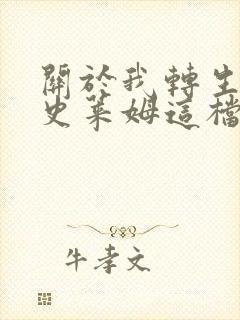 關於我轉生
史萊姆這檔
牛孝文